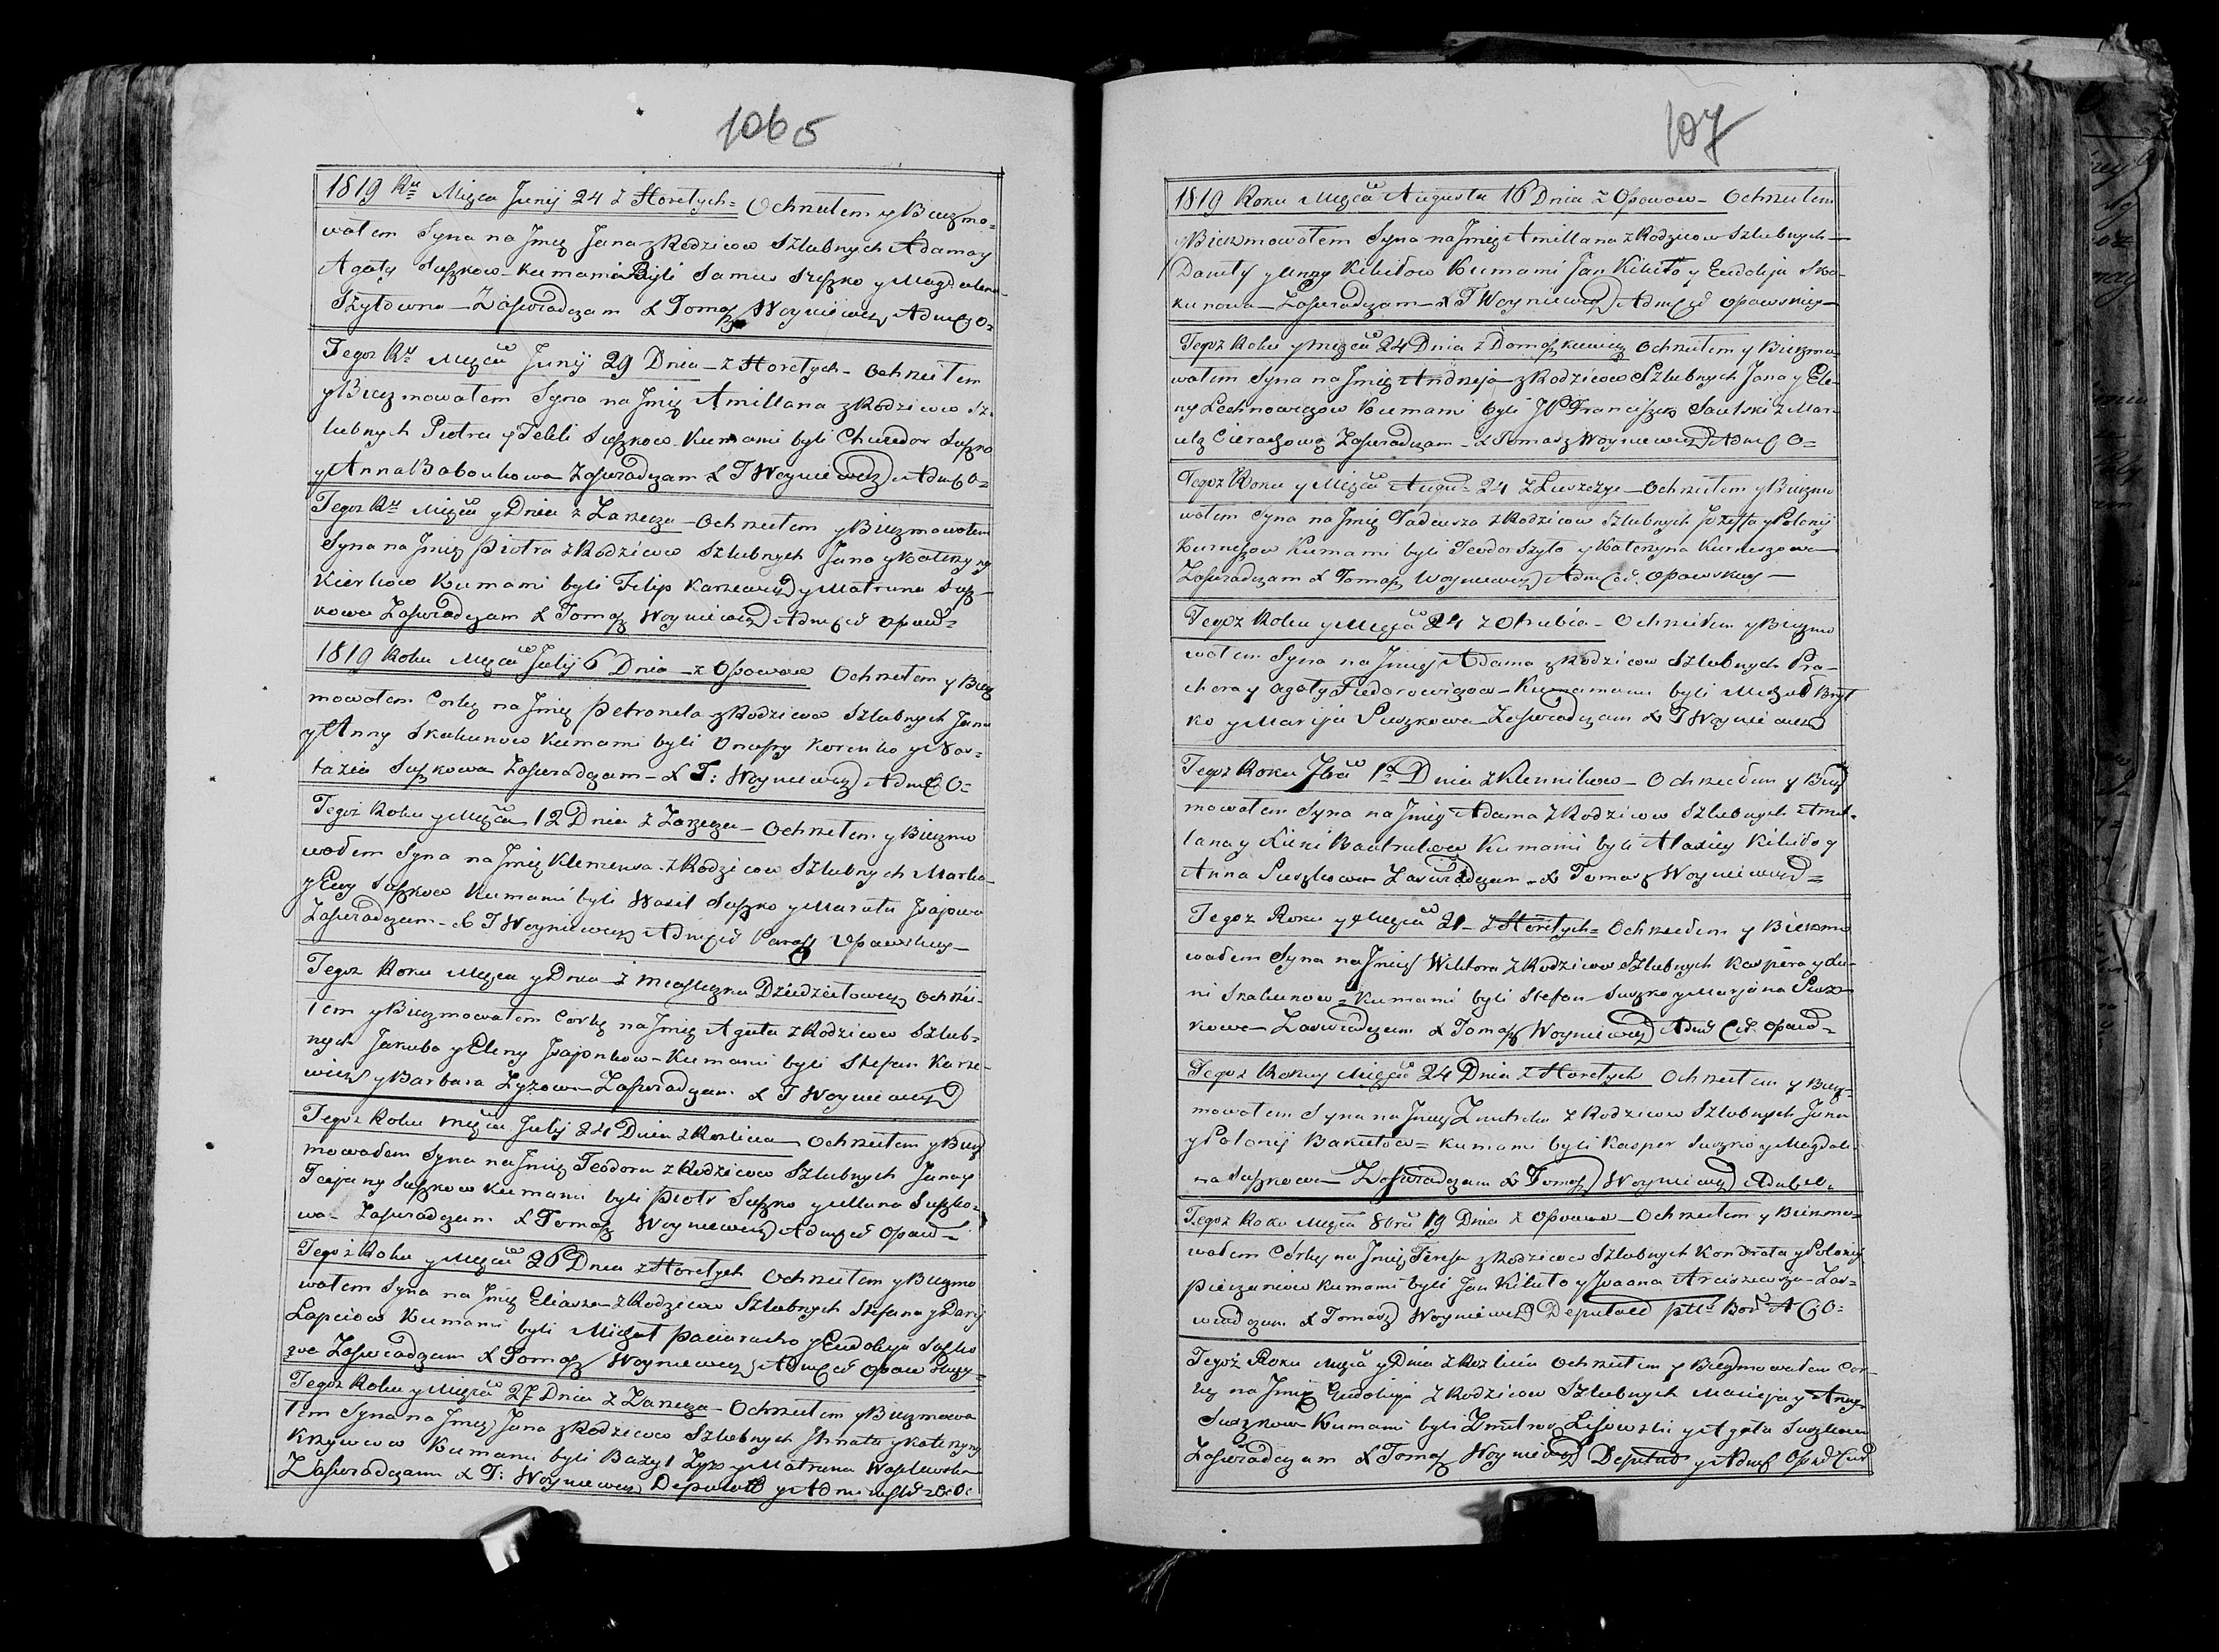 106 5
1819 Ru Mięca Junij 24 z Horetych= Ochrzciłem y Bierzmo-
wałem Syna na Jmię Jana z Rodzicow Szlubnych Adama y
Agaty Suszkow - Kumami Byli Samus Suszko y Magdalena
Szyłowna - Zaświadczam X Tomasz Woyniewicz Adm O=
Tegoż Ru Mięca Junij 29 Dnia - z Horetych - Ochrzciłem
y Bierzmowałem Syna na Jmię Amillana z Rodzicow Sz-
lubnych Piotra y Tekli Suszkow - Kumami byli Chwedor Suszko
y Anna Babonkowa Zaświadczam X T Woyniewicz Adm O=
Tegoż Ru Mięca y Dnia z Zarzecza - Ochrzciłem y Bierzmowałem
Syna na Jmię Piotra z Rodzicow Szlubnych Jana y Katerzyny
Kierkow Kumami byli Filip Karzewicz y Matruna Susz-
kowa Zaświadczam X Tomasz Woyniewicz Adm Opaw=
1819 Roku Mięca Julij 6 Dnia - z Opowow Ochrzciłem y Bierz
mowałem Corkę na Jmię Petronela z Rodzicow Szlubnych Jana
y Anny Skakunow Kumami byli Onufry Korenko y Nas-
tazia Suszkowa Zaświadczam - X T: Woyniewicz Adm O=
Tegoż Roku y Mięca 12 Dnia z Zarzecza - Ochrzciłem y Bierzmo
wałem Syna na Jmię Klemensa z Rodzicow Szlubnych Marka
y Ewy Suszkow Kumami byli Wasil Suszko y Maruta Jsajowa
Zaświadczam - X T Woyniewicz Parafij Opawskiey -
Tegoż Roku Mięca y Dnia - z Miasteczka Dziedziłowicz Ochrzci-
łem y Bierzmowałem Corkę na Jmię Agata z Rodzicow Szlub-
nych Jakuba y Eleny Jsajonkow - Kumami byli Stefan Karze-
wicz y Barbara Zyzowa Zaświadczam X T Woyniewicz
Tegoż Roku Mięca Julij 24 Dnia z Kozlicza - Ochrzciłem y Bierz
mowałem Syna na Jmię Teodora z Rodzicow Szlubnych Jana y
Tacjany Suszkow Kumami byli Piotr Suszko y Suszko-
wa - Zaświadczam X Tomasz Woyniewicz Opaw=
Tegoż Roku y Mięca 26 Dnia z Horetych Ochrzciłem y Bierzmo
wałem Syna na Jmię Eliasza z Rodzicow Szlubnych Stefana y Darij
Łapciow Kumami byli Michał y Eudokija Suszko
wa Zaświadczam X Tomasz Woyniewicz Opawskiey=
Tegoż Roku y Mięca 27 Dnia z Zarzecza - Ochrzciłem y Bierzmowa
łem Syna na Jmię Jana z Rodzicow Szlubnych Jhnata y Katerzyny
Krzywcow Kumami byli Bazyl Zyz y Matruna
Zaświadczam X T: Woyniewicz
107
1819 Roku Mięca Augusta 16 Dnia z Opowow - Ochrzciłem
y Bierzmowałem Syna na Jmię Amillana z Rodzicow Szlubnych -
Daniły y Anny Kikiłow Kumami Jan Kikiło y Eudokija Ska-
kunowa - Zaświadczam - X T Woyniewicz Opawskiey -
Tegoż Roku y Mięca 24 Dnia z Ochrzciłem y Bierzmo-
wałem Syna na Jmię Andrzeja - z Rodzicow Szlubnych Jana y Ele-
ny Lechnowiczow Kumami byli JP Franciszek Saulski z Mar-
 Zaświadczam - X Tomasz Woyniewicz Adm O=
Tegoż Roku y Mięca Augu= 24 z Łuszczyc - Ochrzciłem y Bierzmo
wałem Syna na Jmię Tadeusza z Rodzicow Szlubnych Jozefa y Polonij
Kurneszow Kumami byli Teodor Szyło y Katerzyna Kurneszowa
Zaświadczam X Tomasz Woyniewicz Opawskiey -
Tegoż Roku y Mięca 24 z Otrubia - Ochrzciłem y Bierzmo
wałem Syna na Jmię Adama z Rodzicow Szlubnych Pra-
chora y Agaty Fiedorowiczow - Kumamami byli Michał Bryt
ko y Marija Suszkowa Zaświadczam X T Woyniewicz
Tegoż Roku 7bra 1 Dnia z Klennikow - Ochrzciłem y Bierz
mowałem Syna na Jmię Adama z Rodzicow Szlubnych Amil-
lana y Bautrukow Kumami byli Alaxiey Kikiło y
Anna Suszkowa Zaświadczam - X Tomasz Woyniewicz=
Tegoż Roku y Mięca 21 - z Horetych= Ochrzciłem y Bierzmo
wałem Syna na Jmię Wiktora z Rodzicow Szlubnych Kaspera y Lu-
ni Skakunow= Kumami byli Stefan Suszko y Marjana Susz-
kowa - Zaświadczam X Tomasz Woyniewicz Opaw=
Tegoż Roku y Mięca 24 Dnia z Horetych Ochrzciłem y Bierz-
mowałem Syna na Jmię Zmitroka z Rodzicow Szlubnych Jana
y Polonij Bakułow= Kumami byli Kasper Suszko y Magdale-
na Suszkowa - Zaświadczam X Tomasz Woyniewicz
Tegoż Roku Mięca 8bra 19 Dnia z Opowow - Ochrzciłem y Bierzmo-
wałem Córkę na Jmię Teresa z Rodzicow Szlubnych Kondrata y Polonij
Pieczeniow Kumami byli Jan Kikiło y Joanna Arciszewska - Zas-
wiadczam X Tomasz Woyniewicz Deputat
Tegoż Roku Mięca y Dnia z Kozlicia Ochrzciłem y Bierzmowałem Cor-
kę na Jmię Eudokija z Rodzicow Szlubnych Macieja y Anny
Suszkow Kumami byli Zmitrok Lisowski y Agata Suszkowa
Zaświadczam X Tomasz Woyniewicz Deputat